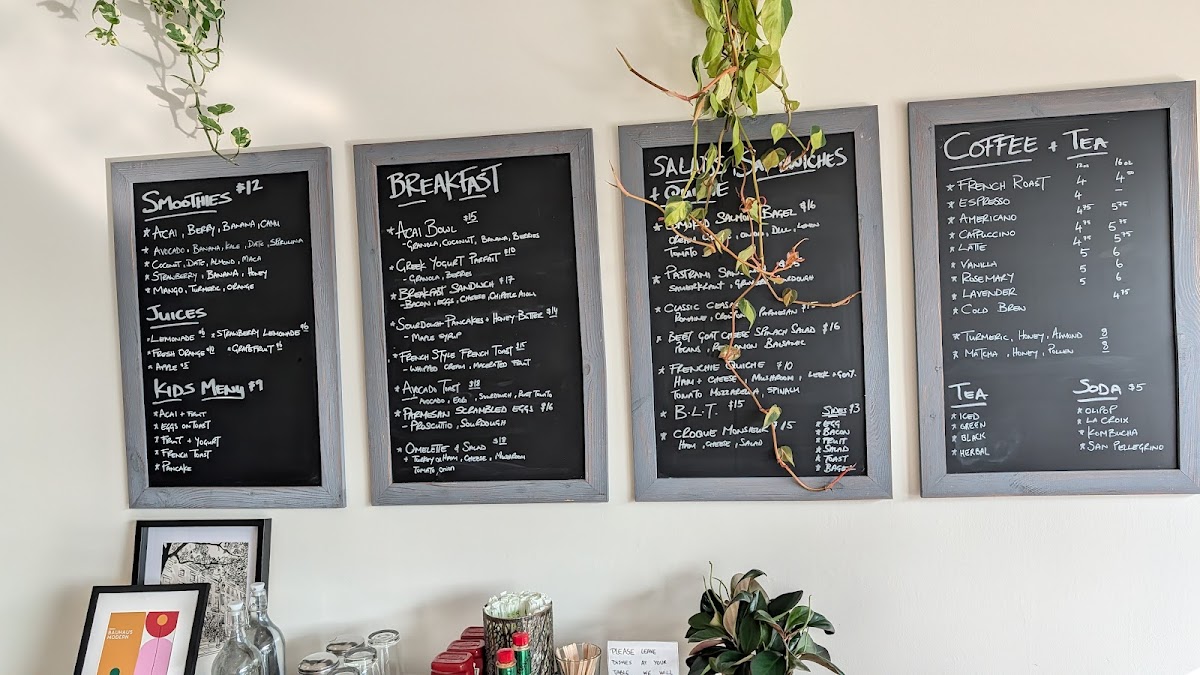 SMOOTHIES $12
* ACAI, BERRY, BANANA, CAMU
* AVOCADO, BANANA, KALE, DATE, SPIRULINA
* COCONUT, DATE, ALMOND, MACA
* STRAWBERRY, BANANA, HONEY
* MANGO, TURMERIC, ORANGE
JUICES
* LEMONADE * STRAWBERRY LEMONADE
* FRESH ORANGE * GRAPEFRUIT
* APPLE
KIDS MENU $9
* ACAI + FRUIT
* EGGS ON TOAST
* FRUIT + YOGURT
* FRENCH TOAST
* PANCAKE
BREAKFAST
* ACAI BOWL $15
- GRANOLA, COCONUT, BANANA, BERRIES
* GREEK YOGURT PARFAIT $10
- GRANOLA, BERRIES
* BREAKFAST SANDWICH $17
- BACON, EGGS, CHEESE, CHIPOTLE AIOLI
* SOURDOUGH PANCAKES + HONEY BUTTER $14
- MAPLE SYRUP
* FRENCH STYLE FRENCH TOAST $15
- WHIPPED CREAM, MACERATED FRUIT
* AVOCADO TOAST $18
AVOCADO, EGG, SOURDOUGH, TOMATO
* PARMESAN SCRAMBLED EGGS $16
- PROSCUTIO, SOURDOUGH
* OMELETTE + SALAD $18
+ TURKEY OR HAM, CHEESE, MUSHROOM
TOMATO, ONION
SALADS SANDWICHES
+ QUICHE
SMOKED SALMON BAGEL $16
CREAM ONION, DILL, LEMON
TOMATO
* PASTRAMI
SAUERKRAUT, SOURDOUGH
* CLASSIC CEASAR
ROMAINE, PARMESAN $15
* BEET GOAT CHEESE SPINACH SALAD $16
PECANS, BALSAMIC
* FRENCHIE QUICHE $10
HAM + CHEESE, MUSHROOM, LEEK + GOAT,
TOMATO MOZZARELLA SPINACH
* B.L.T. $15
* CROQUE MONSIEUR $15
HAM, CHEESE, SALAD
SIDES $3
* EGG
* BACON
* FRUIT
* SALAD
* TOAST
* BAGEL
COFFEE + TEA
12oz 16oz
* FRENCH ROAST 4 4
* ESPRESSO 4 -
* AMERICANO 4.75 5.75
* CAPPUCCINO
* LATTE
* VANILLA 5 6
* ROSEMARY 5 6
* LAVENDER 5 6
* COLD BREW 4.75
* TURMERIC, HONEY, ALMOND 8
* MATCHA, HONEY, POLLEN 8
TEA
* ICED
* GREEN
* BLACK
* HERBAL
SODA $5
* OLIPOP
* LA CROIX
* KOMBUCHA
* SAN PELLEGRINO
BAUHAUS
MODERN
PLEASE LEAVE
DISHES AT YOUR
TABLE WE WILL